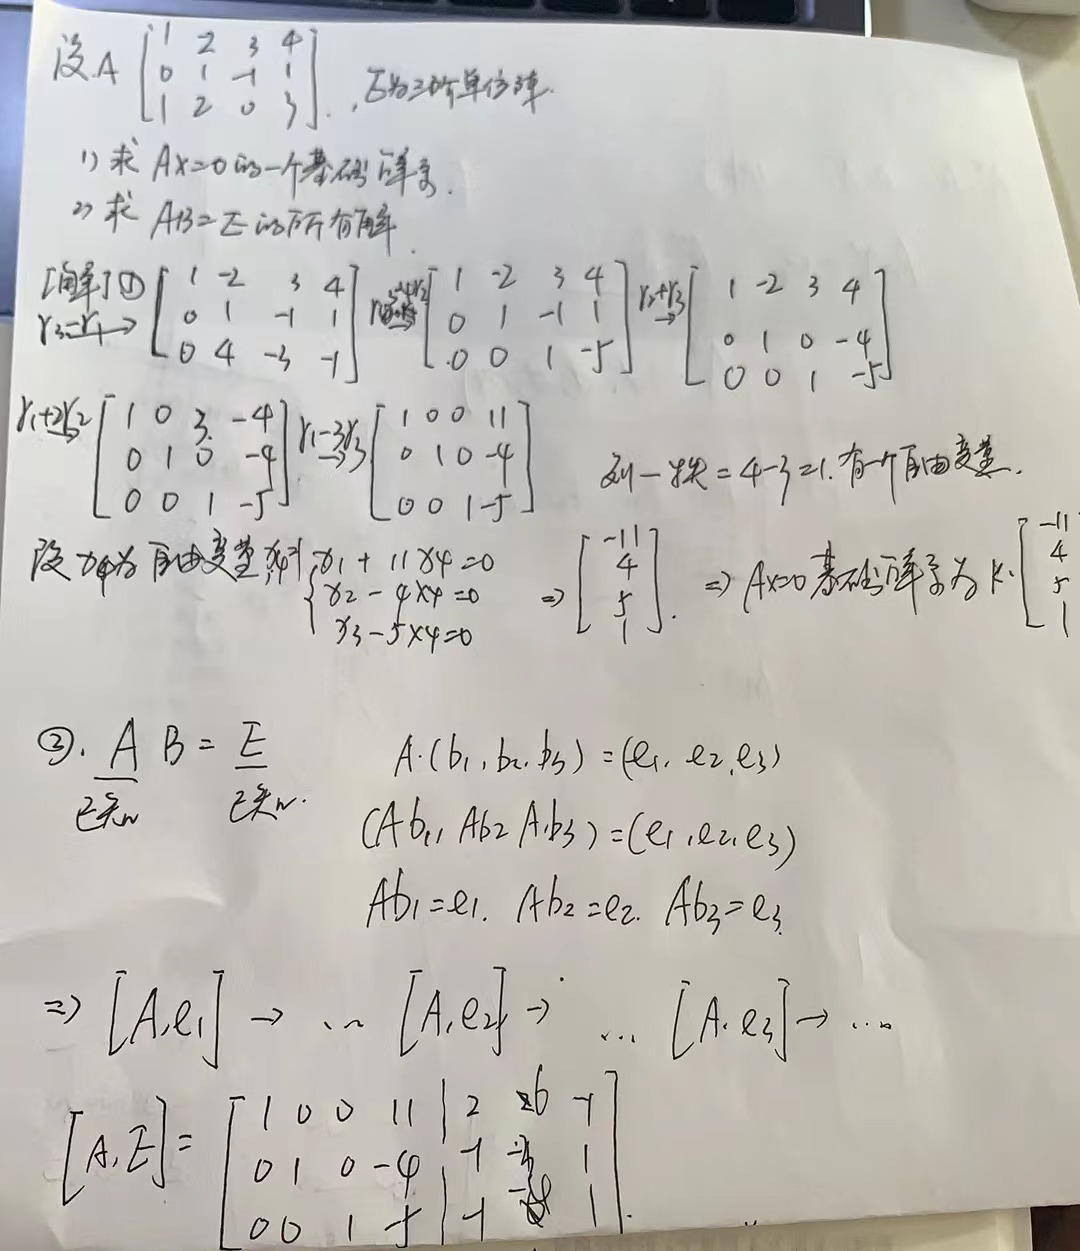 设.A [1 2 3 4; 0 1 -1 1; 1 2 0 3]. , E为三阶单位阵.
1) 求 Ax=0的一个基础解系.
2) 求 AB=E的所有解.
[解] ① [1 -2 3 4; 0 1 -1 1; 0 4 -3 -1] [1 -2 3 4; 0 1 -1 1; 0 0 1 -5] r2+r3→ [1 -2 3 4; 0 1 0 -4; 0 0 1 -5]
r3-r1→
r1+2r2→ [1 0 3 -4; 0 1 0 -4; 0 0 1 -5] r1-3r3→ [1 0 0 11; 0 1 0 -4; 0 0 1 -5] 列-秩=4-3=1. 有一个自由变量.
设x4为自由变量, 则 {x1+11x4=0; x2-4x4=0; x3-5x4=0 ⇒ [-11; 4; 5; 1]. ⇒ Ax=0基础解系为 k·[-11; 4; 5; 1]
②. A B = E A·(b1, b2, b3)=(e1, e2, e3)
已知 已知.
(Ab1, Ab2 Ab3)=(e1, e2, e3)
Ab1=e1. Ab2=e2. Ab3=e3.
⇒ [A,e1] → ... [A,e2] → ... [A.e3] → ...
[A,E]= [1 0 0 11 | 2 6 -1; 0 1 0 -4 | -1 -3 1; 0 0 1 -5 | -1 1].